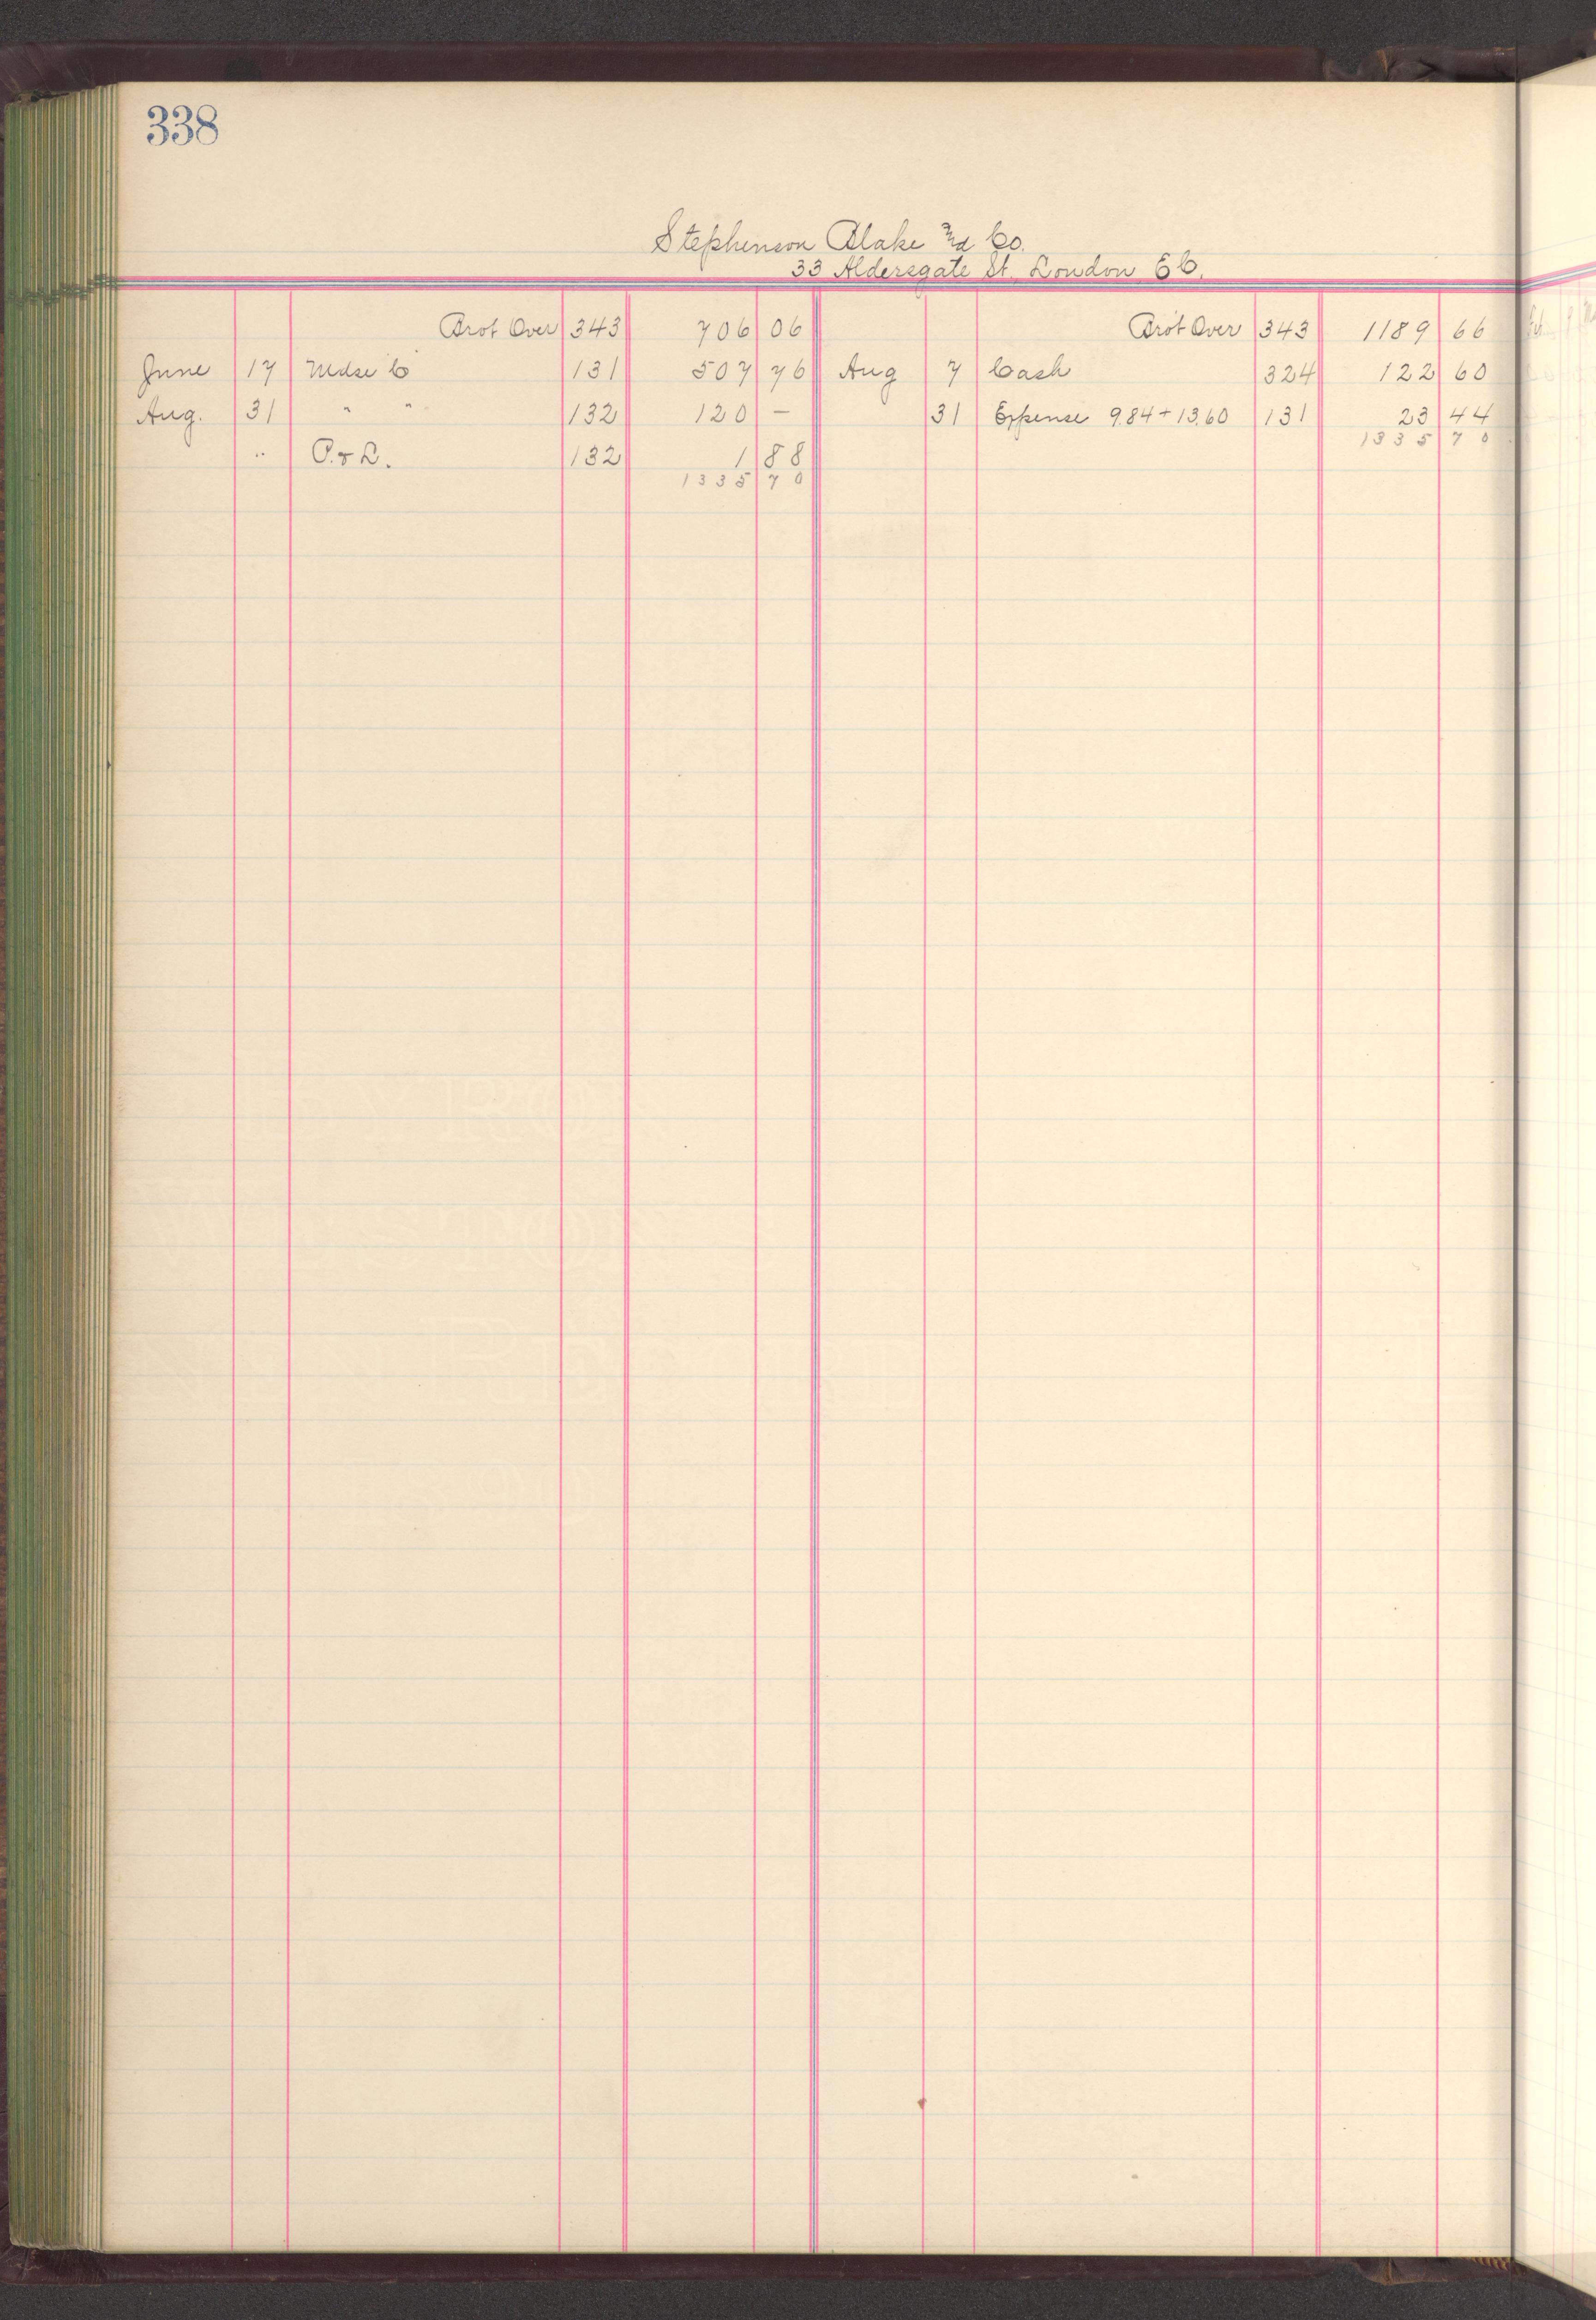 338
Stephenson Blake and Co.
33 Aldersgate St. London E C.
Brot Over 343 706 06 Brot Over 343 1189 66
June 17 Mdse C 131 507 76 Aug 7 Cash 324 122 60
Aug. 31 " " 132 120 — 31 Expense 9.84 + 13.60 131 23 44
1335 70
" P. & L. 132 1 88
1335 70
BYRON
WESTON'S
LINEN RECORD
1890